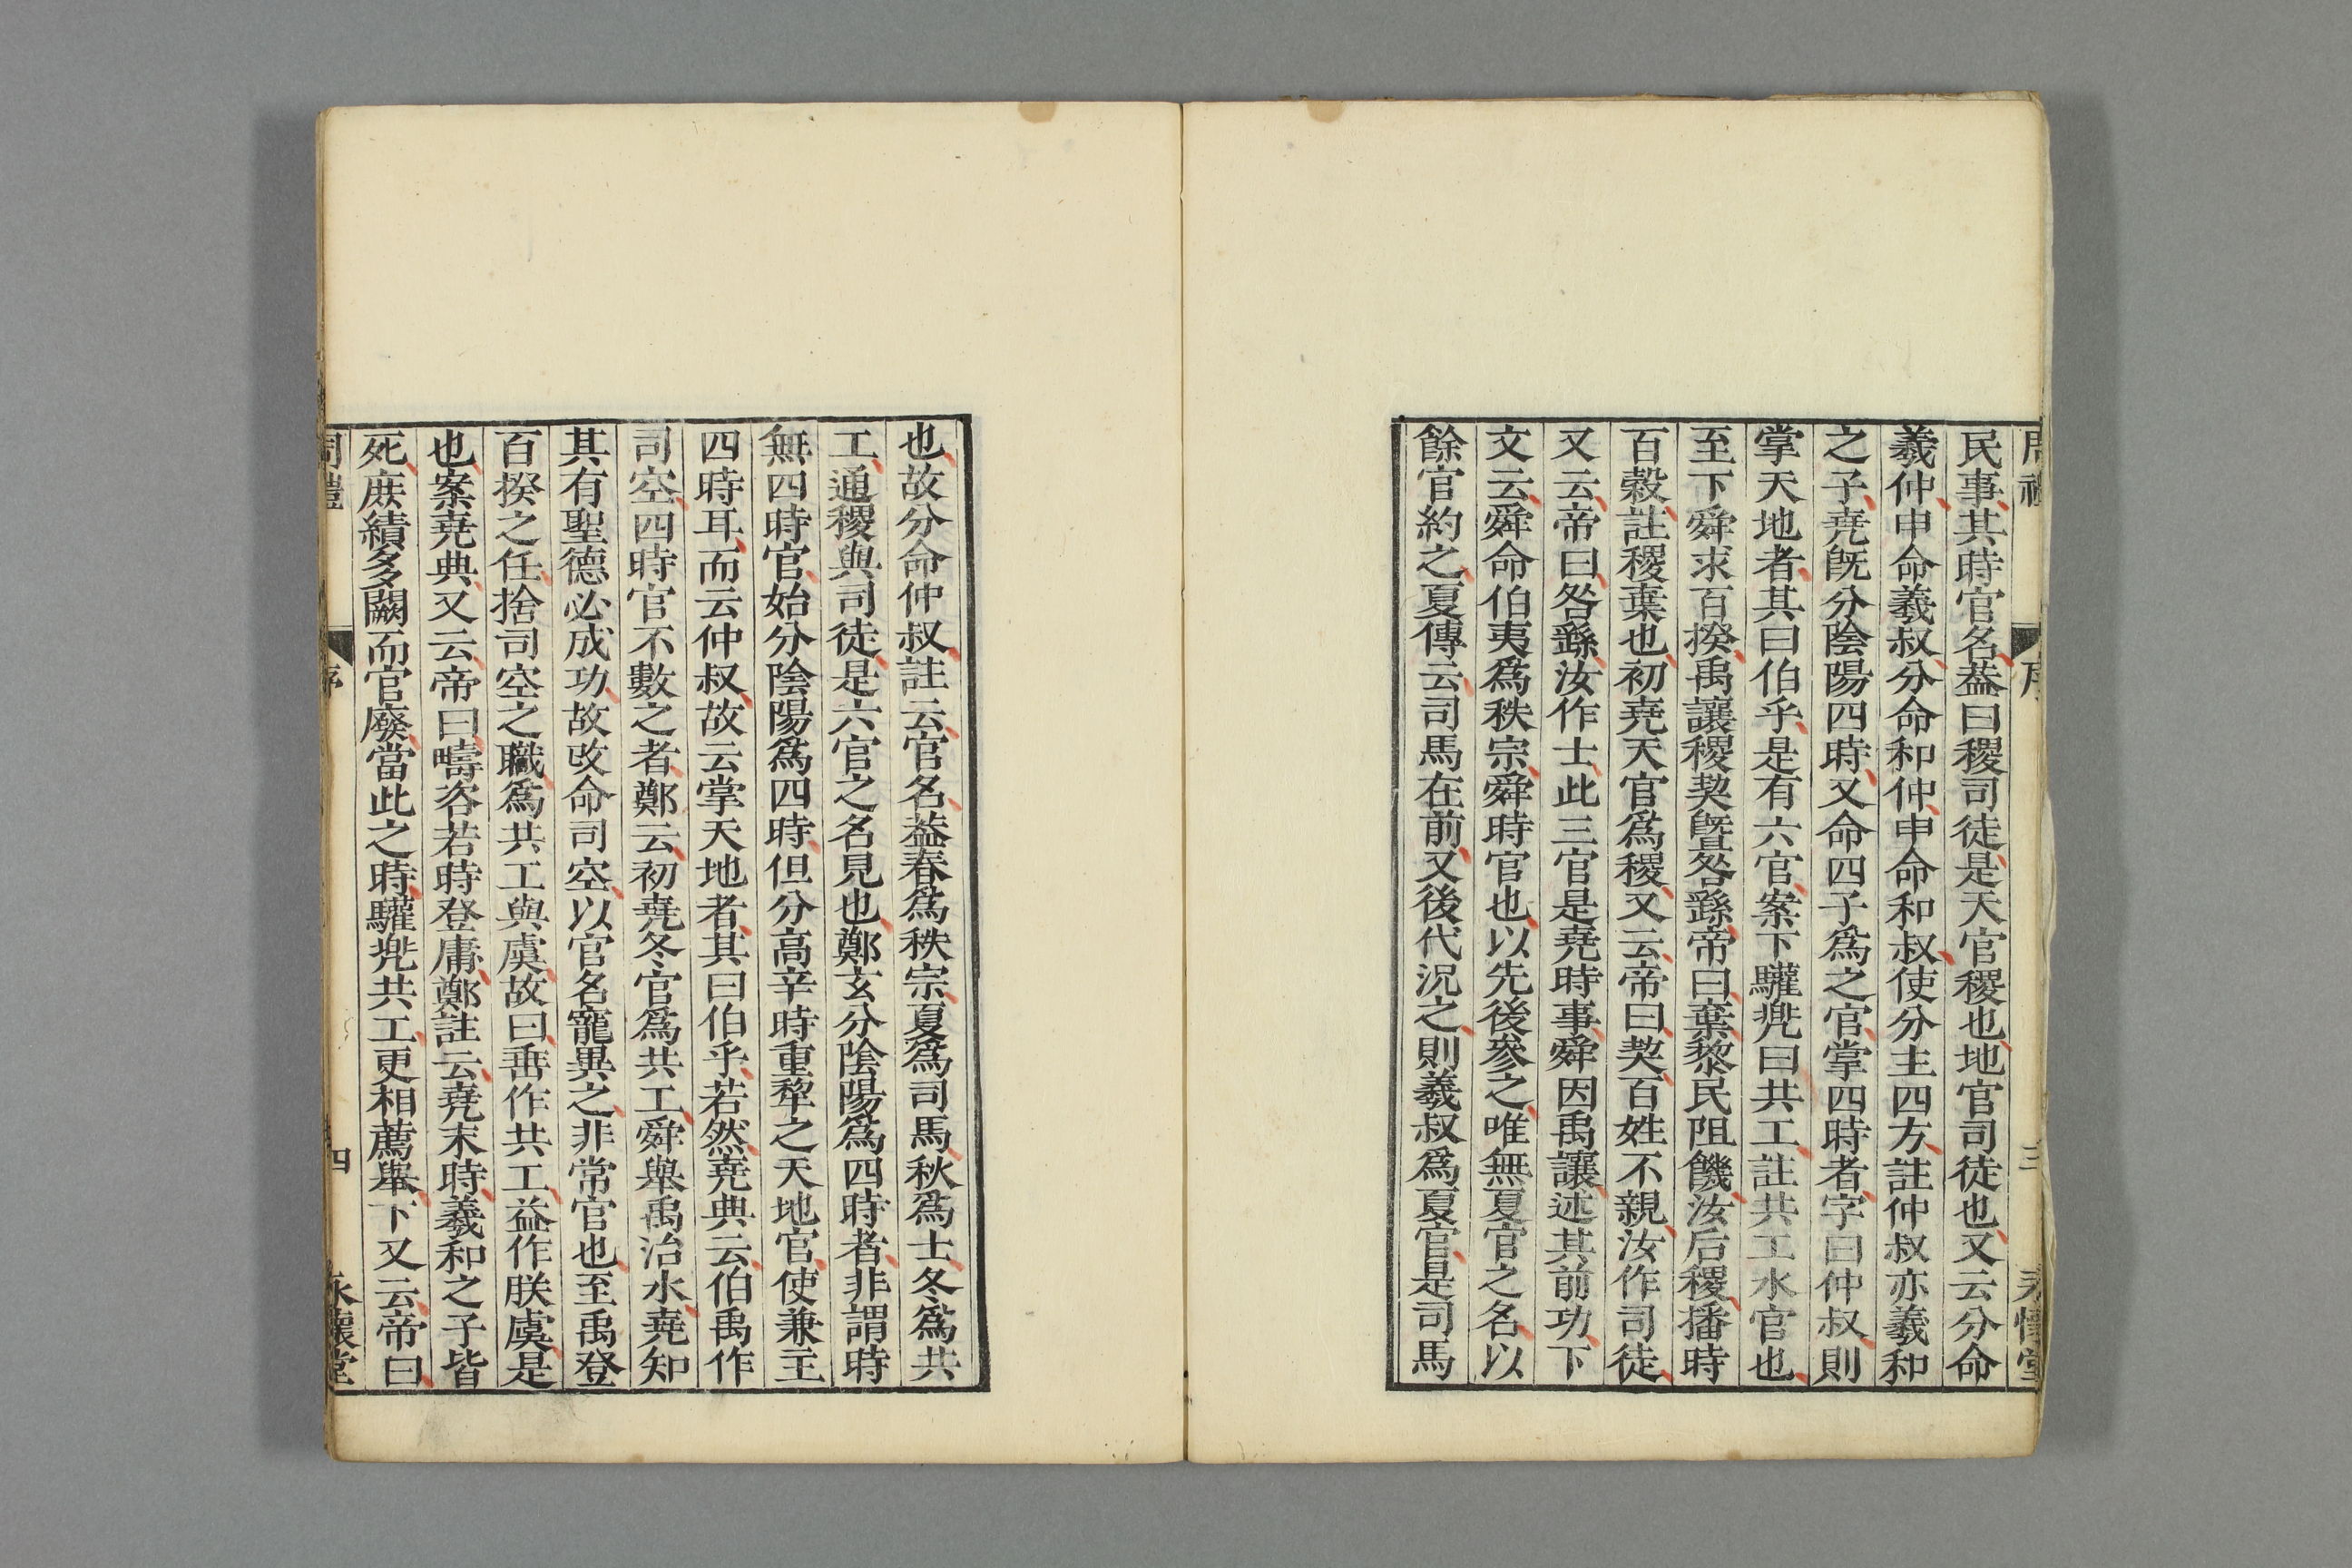 周禮
序
三
永懷堂
民事其時官名葢曰稷司徒是天官稷也地官司徒也又云分命
羲仲申命羲叔分命和仲申命和叔使分主四方註仲叔亦羲和
之子堯旣分陰陽四時又命四子爲之官掌四時者字曰仲叔則
掌天地者其曰伯乎是有六官案下驩兠曰共工註共工水官也
至下舜求百揆禹讓稷契曁咎繇帝曰棄黎民阻饑汝后稷播時
百穀註稷棄也初堯天官爲稷又云帝曰契百姓不親汝作司徒
又云帝曰咎繇汝作士此三官是堯時事舜因禹讓述其前功下
文云舜命伯夷爲秩宗舜時官也以先後叅之唯無夏官之名以
餘官約之夏傳云司馬在前又後代况之則羲叔爲夏官是司馬
也故分命仲叔註云官名葢春爲秩宗夏爲司馬秋爲士冬爲共
工通稷與司徒是六官之名見也鄭玄分陰陽爲四時者非謂時
無四時官始分陰陽爲四時但分高辛時重犂之天地官使兼主
四時耳而云仲叔故云掌天地者其曰伯乎若然堯典云伯禹作
司空四時官不數之者鄭云初堯冬官爲共工舜舉禹治水堯知
其有聖德必成功故改命司空以官名寵異之非常官也至禹登
百揆之任捨司空之職爲共工與虞故曰垂作共工益作朕虞是
也案堯典又云帝曰疇咨若時登庸鄭註云堯末時羲和之子皆
死庶績多闕而官廢當此之時驩兠共工更相薦舉下又云帝曰
周禮
序
四
永懷堂